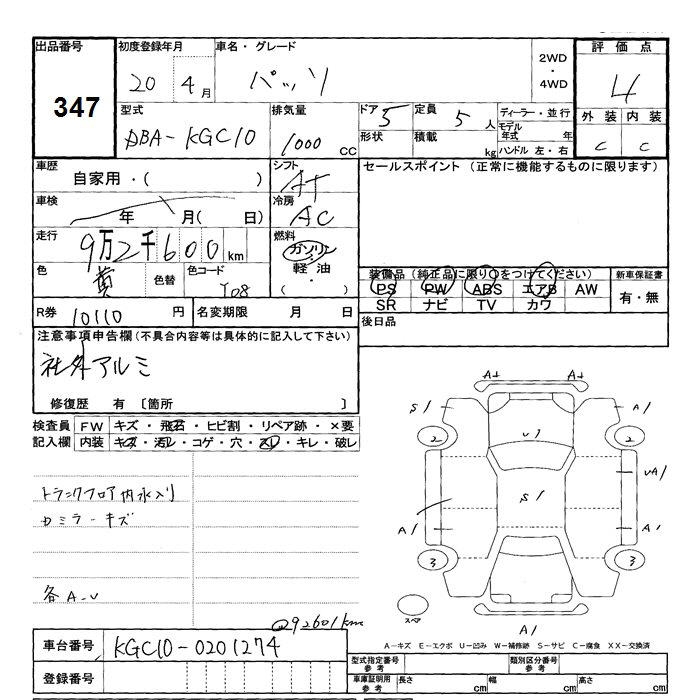 出品番号
347
初度登録年月
20 4月
車名・グレード
パッソ
2WD
・
4WD
評価点
4
外装 内装
C C
型式
DBA-KGC10
排気量
1000 CC
ドア 5
形状
定員 5 人
積載 kg
ディーラー・並行
モデル年式 年
ハンドル 左・右
車歴
自家用・( )
シフト
AT
セールスポイント (正常に機能するものに限ります)
車検
年 月( 日)
冷房
AC
走行
9万2千600km
燃料
ガソリン
軽油
・( )
色
黄
色替
色コード
Y08
装備品 (純正品に限り○をつけてください)
PS PW ABS エアB AW
SR ナビ TV カワ
新車保証書
有・無
R券 10110 円
名変期限 月 日
後日品
注意事項申告欄(不具合内容等は具体的に記入して下さい)
社外アルミ
修復歴 有 〔箇所 〕
検査員記入欄
FW キズ・飛石・ヒビ割・リペア跡・×要
内装 キズ・汚レ・コゲ・穴・スレ・キレ・破レ
トランクフロア内水入り
カミラーキズ
各A-U
@92601km
A+ A+
S1 A1
2 U1 2
UA1
S1
A1 A1
3 3
スペア
A1
A-キズ E-エクボ U-凹み W-補修跡 S-サビ C-腐食 XX-交換済
車台番号 KGC10-0201274
登録番号
型式指定番号 参考
類別区分番号 参考
車庫証明用 参考
長さ cm 幅 cm 高さ cm